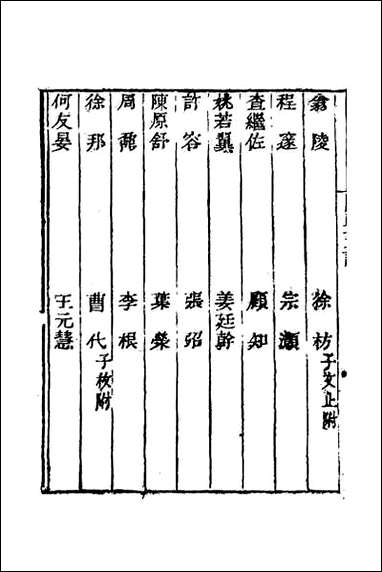 翁陵 徐枋子文止附
程邃 宗灝
查繼佐 顧知
姚若翼 姜廷幹
許容 張弨
陳原舒 葉榮
周鼐 李根
徐邦 曹代子枚附
何友晏 王元慧